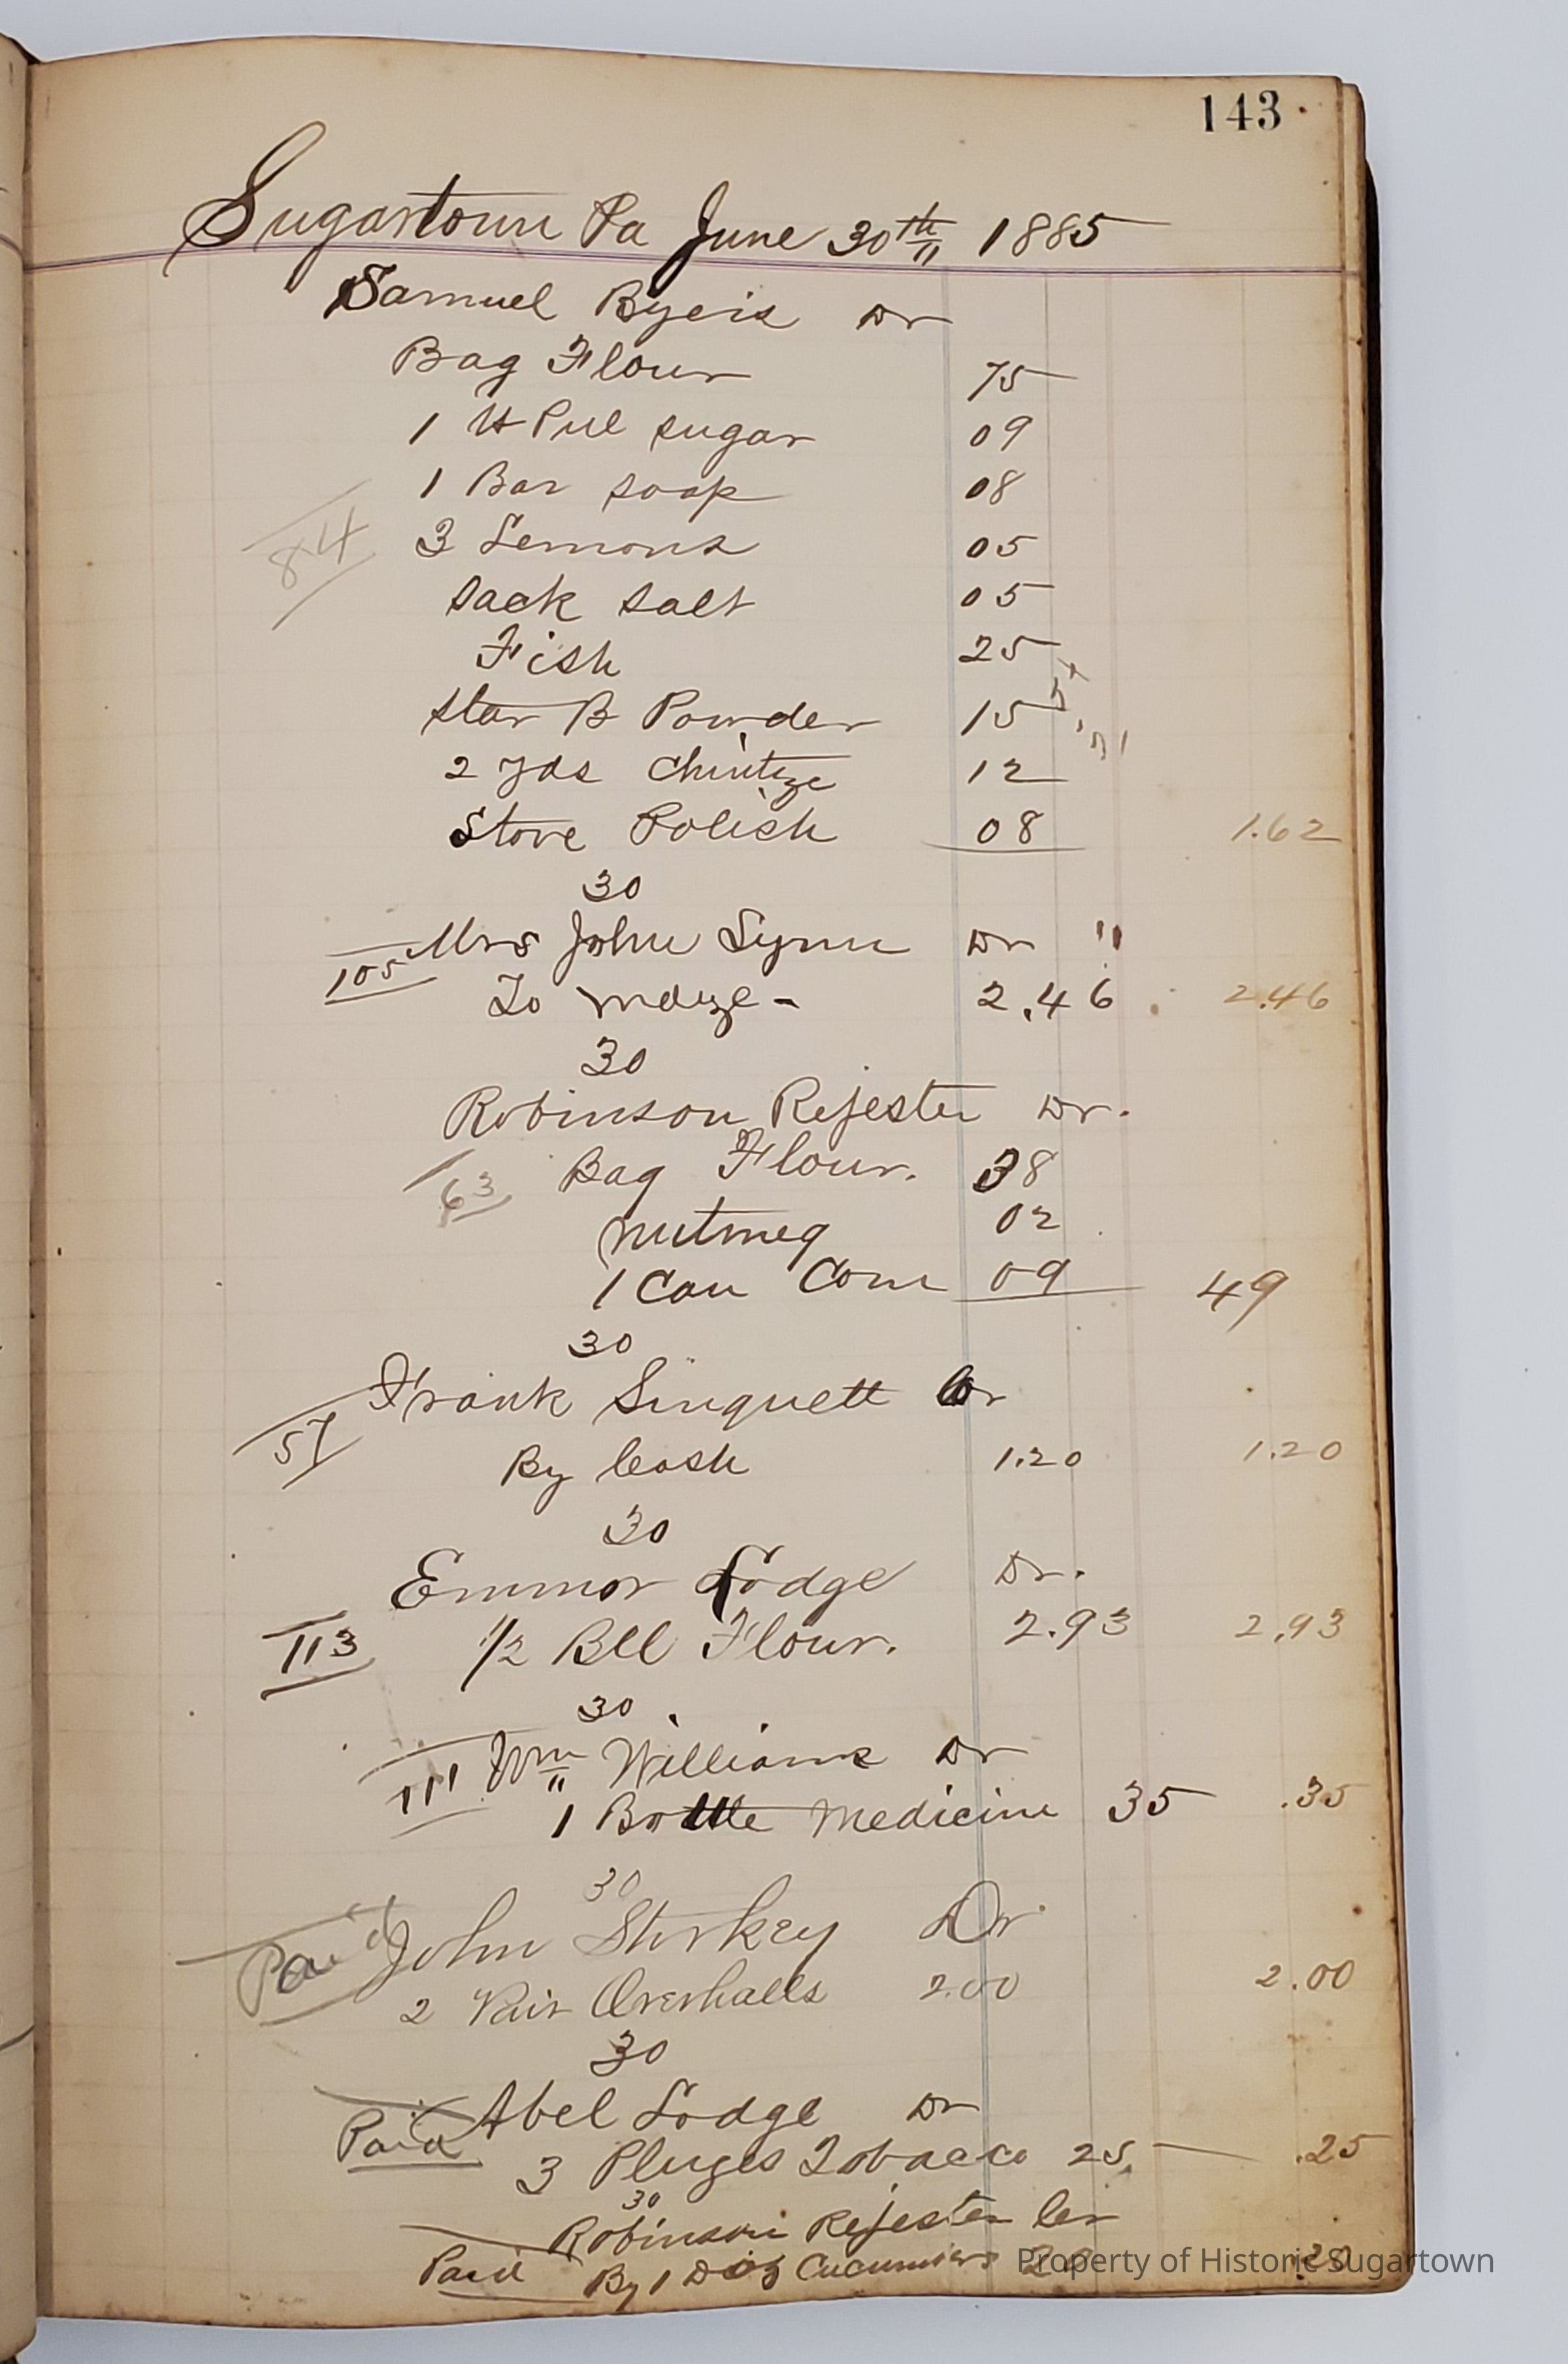 143
Sugartown Pa June 30th 1885
Samuel Byers Dr
Bag Flour 75
1 lb Pul sugar 09
1 Bar soap 08
84 3 Lemons 05
Sack Salt 05
Fish 25
Star B Powder 15
2 yds Chintze 12
Stove Polish 08 1.62
30
Mrs John Lynn Dr "
105 To Mdze - 2.46 2.46
30
Robinson Rejester Dr.
63 Bag Flour. 38
Nutmeg 02
1 Can Corn 09 49
30
57 Frank Singuett Cr
By Cash 1.20 1.20
30
Emmor Lodge Dr.
113 1/2 Bll Flour. 2.93 2.93
30
111 Wm Williams Dr
1 Bottle Medicine 35 .35
30
Paid John Storkey Dr
2 Pair Overhalls 2.00 2.00
30
Paid Abel Lodge Dr
3 Pluges Tobacco 25 .25
30
Robinson Rejester Cr
Paid By 1 Doz Cucumbers
Property of Historic Sugartown